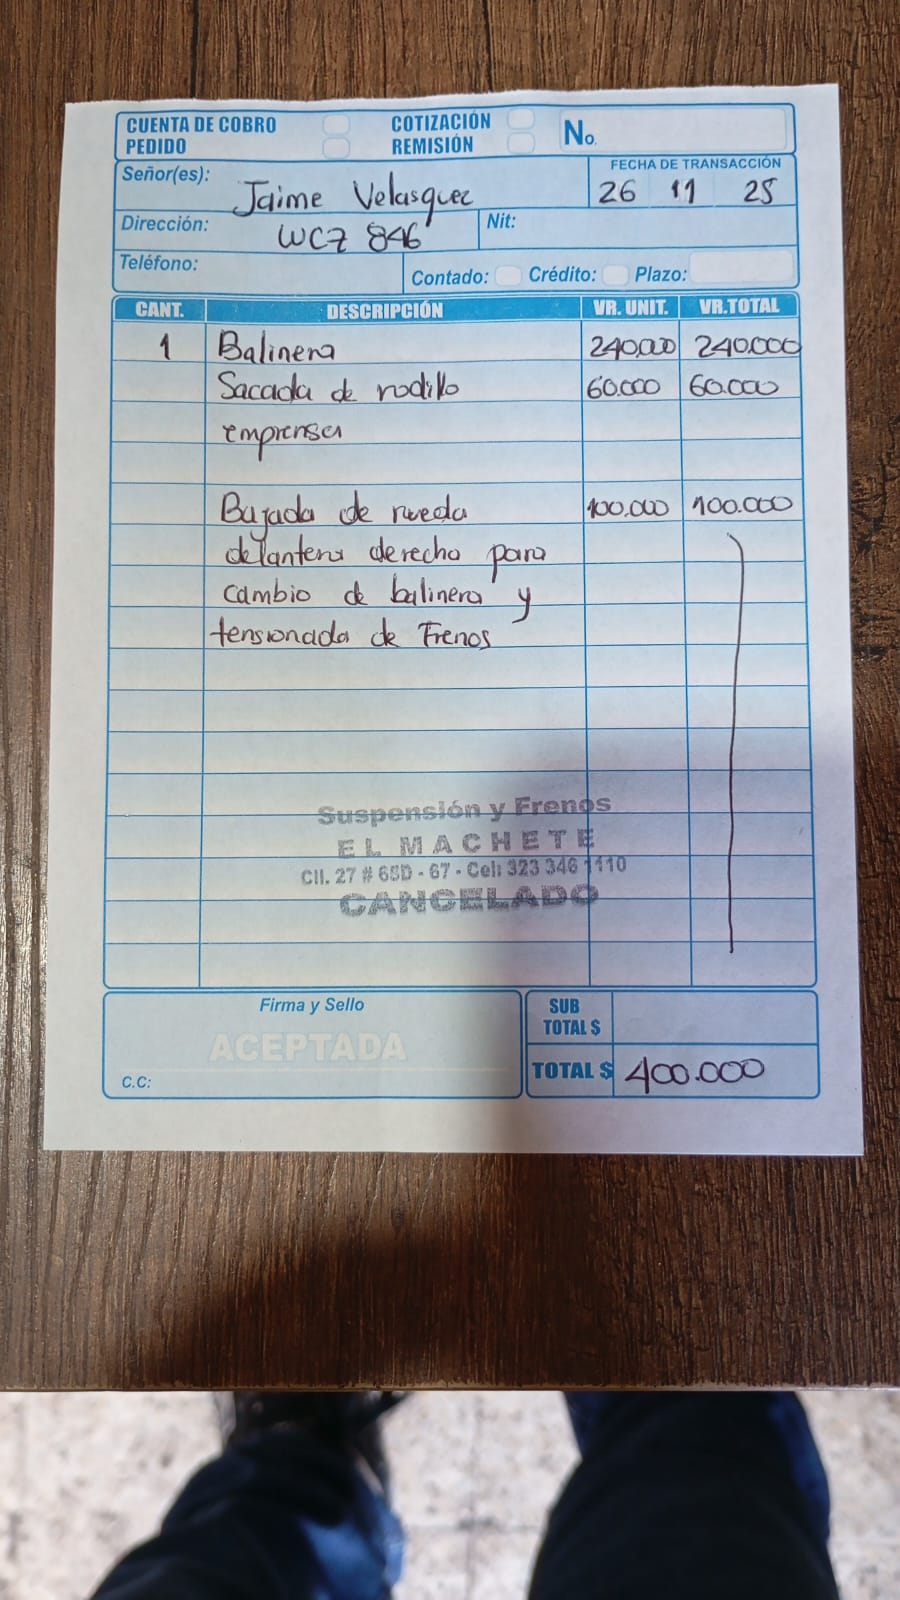 CUENTA DE COBRO COTIZACIÓN No.
PEDIDO REMISIÓN
Señor(es): Jaime Velasquez
FECHA DE TRANSACCIÓN
26 11 25
Dirección: WCZ 846 Nit:
Teléfono: Contado: Crédito: Plazo:
CANT. DESCRIPCIÓN VR. UNIT. VR.TOTAL
1 Balinera 240.000 240.000
Sacada de rodillo 60.000 60.000
emprensa
Bajada de rueda 100.000 100.000
delantera derecho para
cambio de balinera y
tensionada de Frenos
Suspensión y Frenos
EL MACHETE
Cll. 27 # 65D - 67 - Cel: 323 346 1110
CANCELADO
Firma y Sello
ACEPTADA
C.C:
SUB
TOTAL $
TOTAL $ 400.000